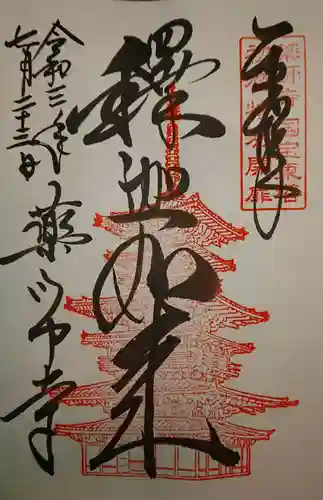 奉拝
薬師寺 国宝東塔
釋迦如来
令和三年
七月二十三日
薬師寺